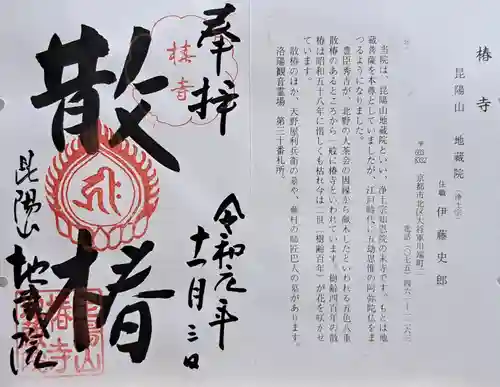 奉拝
椿
寺
散椿
令和元年
十一月三日
昆陽山
地蔵院
昆陽山
椿寺
椿寺
昆陽山 地蔵院(浄土宗)
住職 伊藤史郎
〒603-8332 京都市北区大将軍川端町二
電話(〇七五)四六一-一二六三
当院は、昆陽山地蔵院といい、浄土宗知恩院の末寺です。もとは地
蔵菩薩を本尊としていましたが、江戸時代に五劫思惟の阿弥陀仏をま
つるようになりました。
豊臣秀吉が、北野の大茶会の因縁から献木したといわれる五色八重
散椿のあるところから一般に椿寺といわれています。樹齢四百年の散
椿は昭和五十八年に惜しくも枯れ今は二世(樹齢百年)が花を咲かせ
ています。
散椿のほか、天野屋利兵衛の墓や、蕪村の師匠巴人の墓があります。
洛陽観音霊場 第三十番札所。